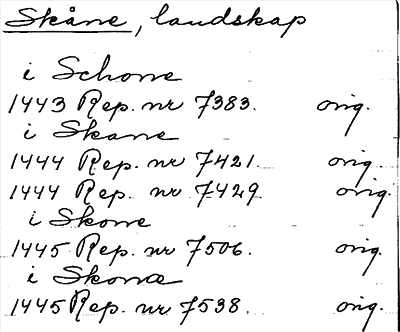 Skåne, landskap
i Schone
1443 Rep. nr 7383. orig.
i Skane
1444 Rep. nr 7421. orig.
1444 Rep. nr 7429 orig.
i Skone
1445 Rep. nr 7506. orig.
i Skonæ
1445 Rep. nr 7538. orig.